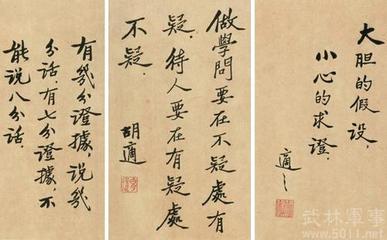 大胆的假设
小心的求證.
適之
做學問要在不疑處有
疑.待人要在有疑處
不疑.
胡適
有幾分證據,說幾
分話.有七分證據,不
能說八分話.
武林军事
www.5011.net